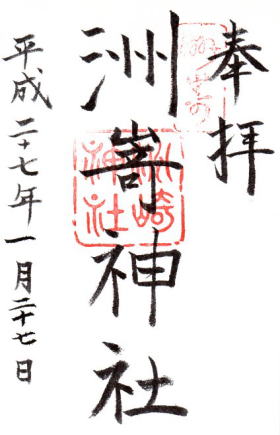 奉拝
洲嵜神社
洲崎神社
平成二十七年一月二十七日